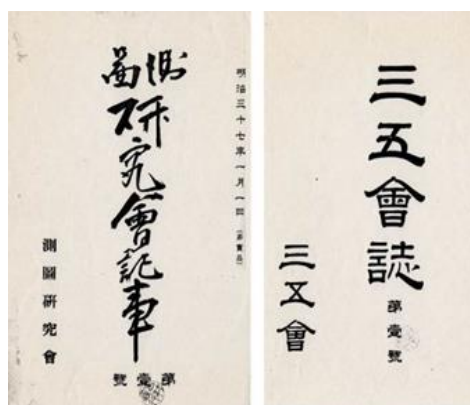 明治三十七年一月一日(非賣品)
測圖
研究會記事
第壹號
測圖硏究會
三五會誌
第壹號
三五會